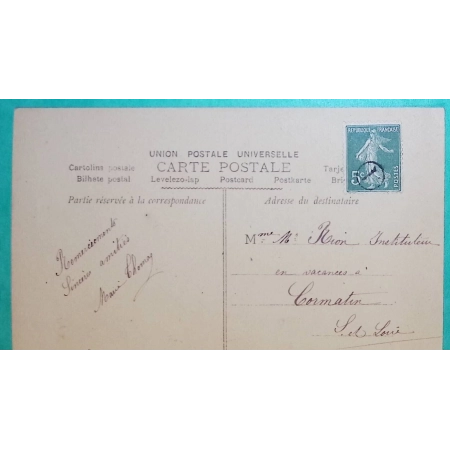 REPUBLIQUE FRANÇAISE
5c
POSTES
UNION POSTALE UNIVERSELLE
CARTE POSTALE
Cartolina postale
Tarje
Bilhete postal Levelezo-lap Postcard Postkarte Bri
Partie réservée à la correspondance
Adresse du destinataire
Remerciements
Sincères amitiés
Marie
Mme Mr Rion Institutrice
en vacances à
Cormatin
S et Loire